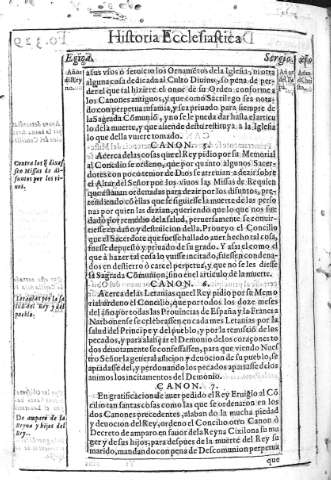 Historia Ecclesiastica
Egica. Sergio.
a sus vsos ò seruicio los Ornamẽtos de la Iglesia, ni otra
alguna cosa dedicada al Culto Diuino, so pena de per-
der el que tal hiziere el onor de su Orden conforme a
los Canones antiguos, y que como Sacrilego sea nota-
do con perpetua infamia, y sea priuado para siempre de
la Sagrada Comunió, y no se le pueda dar hasta el articu-
lo de la muerte, y que allende desto restituya a la Iglesia
lo que della vuiere tomado.
CANON. 5.
Acerca de las cosas que el Rey pidio por su Memorial
al Concilio se ordeno, que por quanto algunos Sacer-
dotes con poco temor de Dios se atreuian a dezir sobre
el Altar del Señor por los viuos las Missas de Requien
que estauan ordenadas para dezir por los difuntos, pre-
tendiendo cõ ellas que se siguiesse la muerte de las perso-
nas por quien las dezian, queriendo que lo que nos fue
dado por remedio de la salud, peruersamente se conuir-
tiesse en daño y destruicion della. Proueyo el Concilio
que el Sacerdote que fuesse hallado auer hecho tal cosa,
fuesse depuesto y priuado de su grado. Y assi el como el
que à hazer tal cosa lo vuisse incitado, fuessen condena-
dos en destierro ò carcel perpetua, y que no se les diesse
la Sagrada Comunion, sino en el articulo de la muerte.
CANON. 6.
Acerca de las Letanias que el Rey pidio por su Memo-
rial ordeno el Concilio, que por todos los doze meses
del año por todas las Prouincias de España y la Francia
Narbonense se celebrassen en cada mes Letanias por la
salud del Principe y del pueblo, y por la remissió de los
pecados, y para alançar el Demonio de los coraçones to-
dos deuotamente se confessassen, para que viendo Nues-
tro Señor la general afliccion y deuocion de su pueblo, se
apiadasse del, y perdonando los pecados apartasse de los
animos los incitamentos del Demonio.
CANON. 7.
En gratificacion de auer pedido el Rey Eruigio al Có
cilio tan santas cosas como las que se ordenaron en los
Canones precedentes, alaban do la mucha piedad
y deuocion del Rey, ordeno el Concilio otro Canon ò
Decreto de amparo en fauor de la Reyna Cixilona su mu-
ger y de sus hijos, para despues de la muerte del Rey su
marido, mandando con pena de Descomunion perpetua
que
Contra los q̃ dixessen
Missas de di-
funtos por los vi-
uos.
Letanias por la sa
lud del Rey y del
pueblo.
De amparo de la
Reyna y hijos del
Rey.